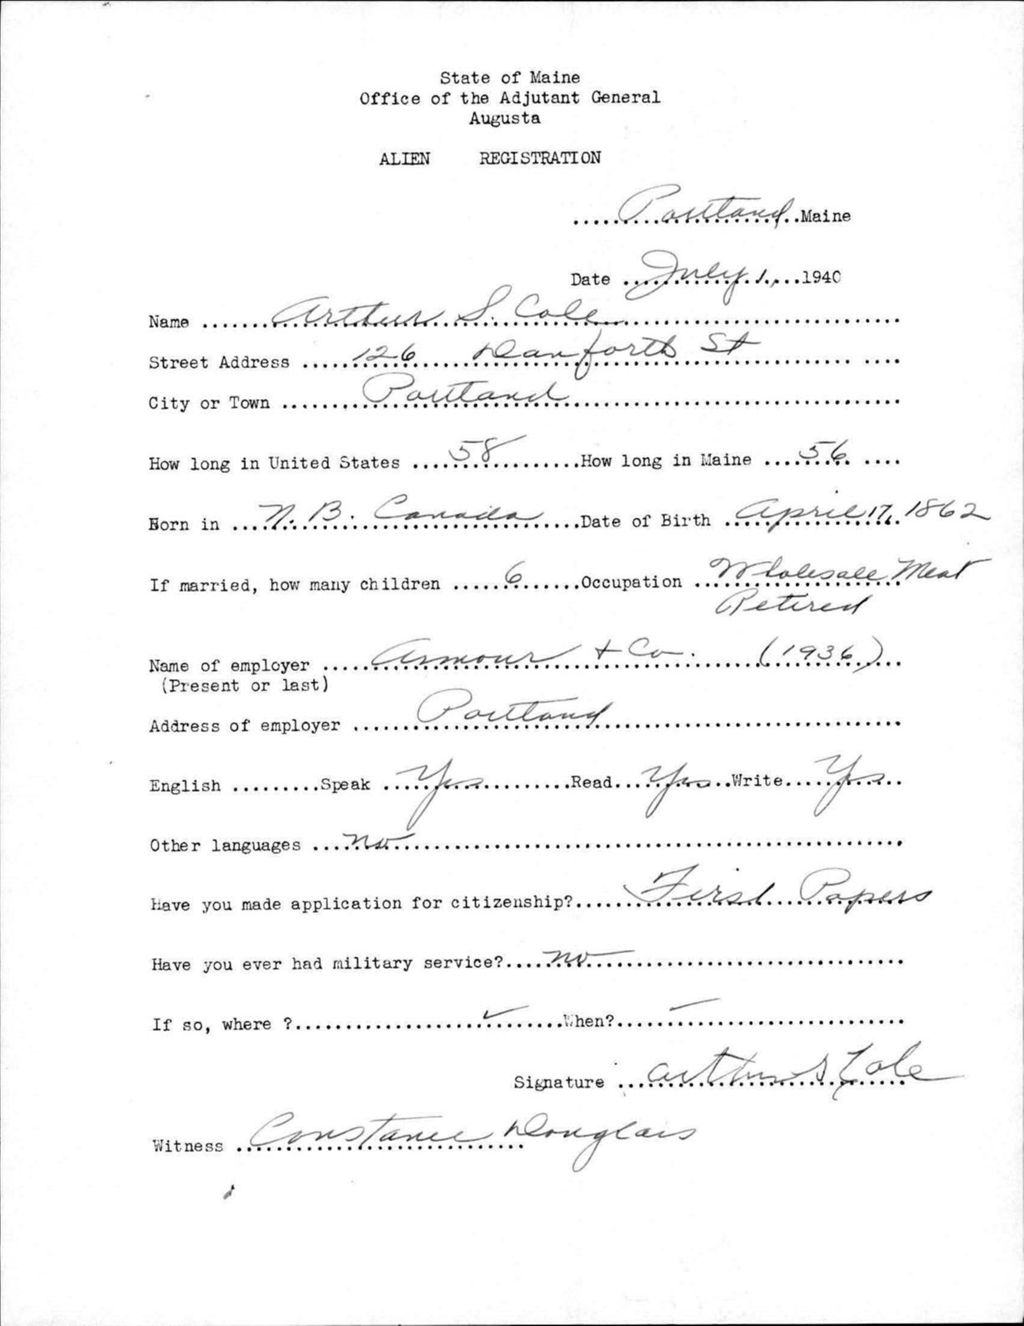 State of Maine
Office of the Adjutant General
Augusta
ALIEN REGISTRATION
.....Portland..Maine
Date ...July 1,...1940
Name .......Arthur S. Cole..............................
Street Address ......126....Danforth St.............. ....
City or Town ..........Portland..............................
How long in United States ....58..........How long in Maine ....56. ....
Born in ...N. B. Canada....Date of Birth ..April 17, 1862
If married, how many children .....6.......Occupation ...Wholesale Meat
Retired
Name of employer .....Armour & Co. ......(1936)...
(Present or last)
Address of employer .......Portland..............................
English .........Speak ....Yes..........Read....Yes...Write....Yes..
Other languages ...no..................................................
Have you made application for citizenship?......First Papers
Have you ever had military service?....no..............................
If so, where ?.....................✓........When?......–......................
Signature ...Arthur S Cole
Witness ..Constance Douglass